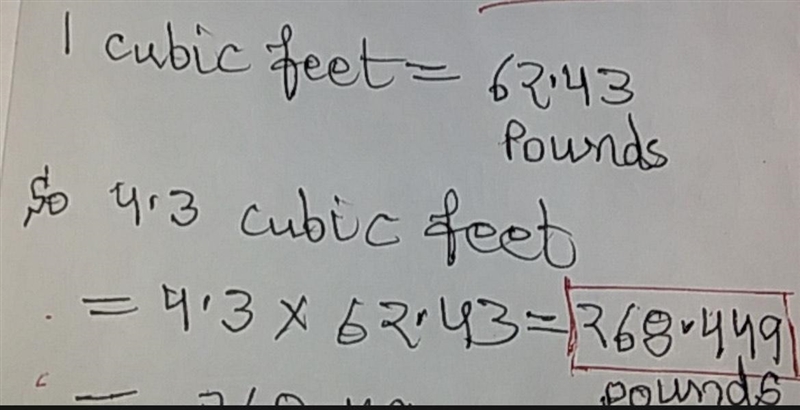 1 cubic feet = 62.43
Pounds
So 4.3 cubic feet
= 4.3 × 62.43 = 268.449
pounds